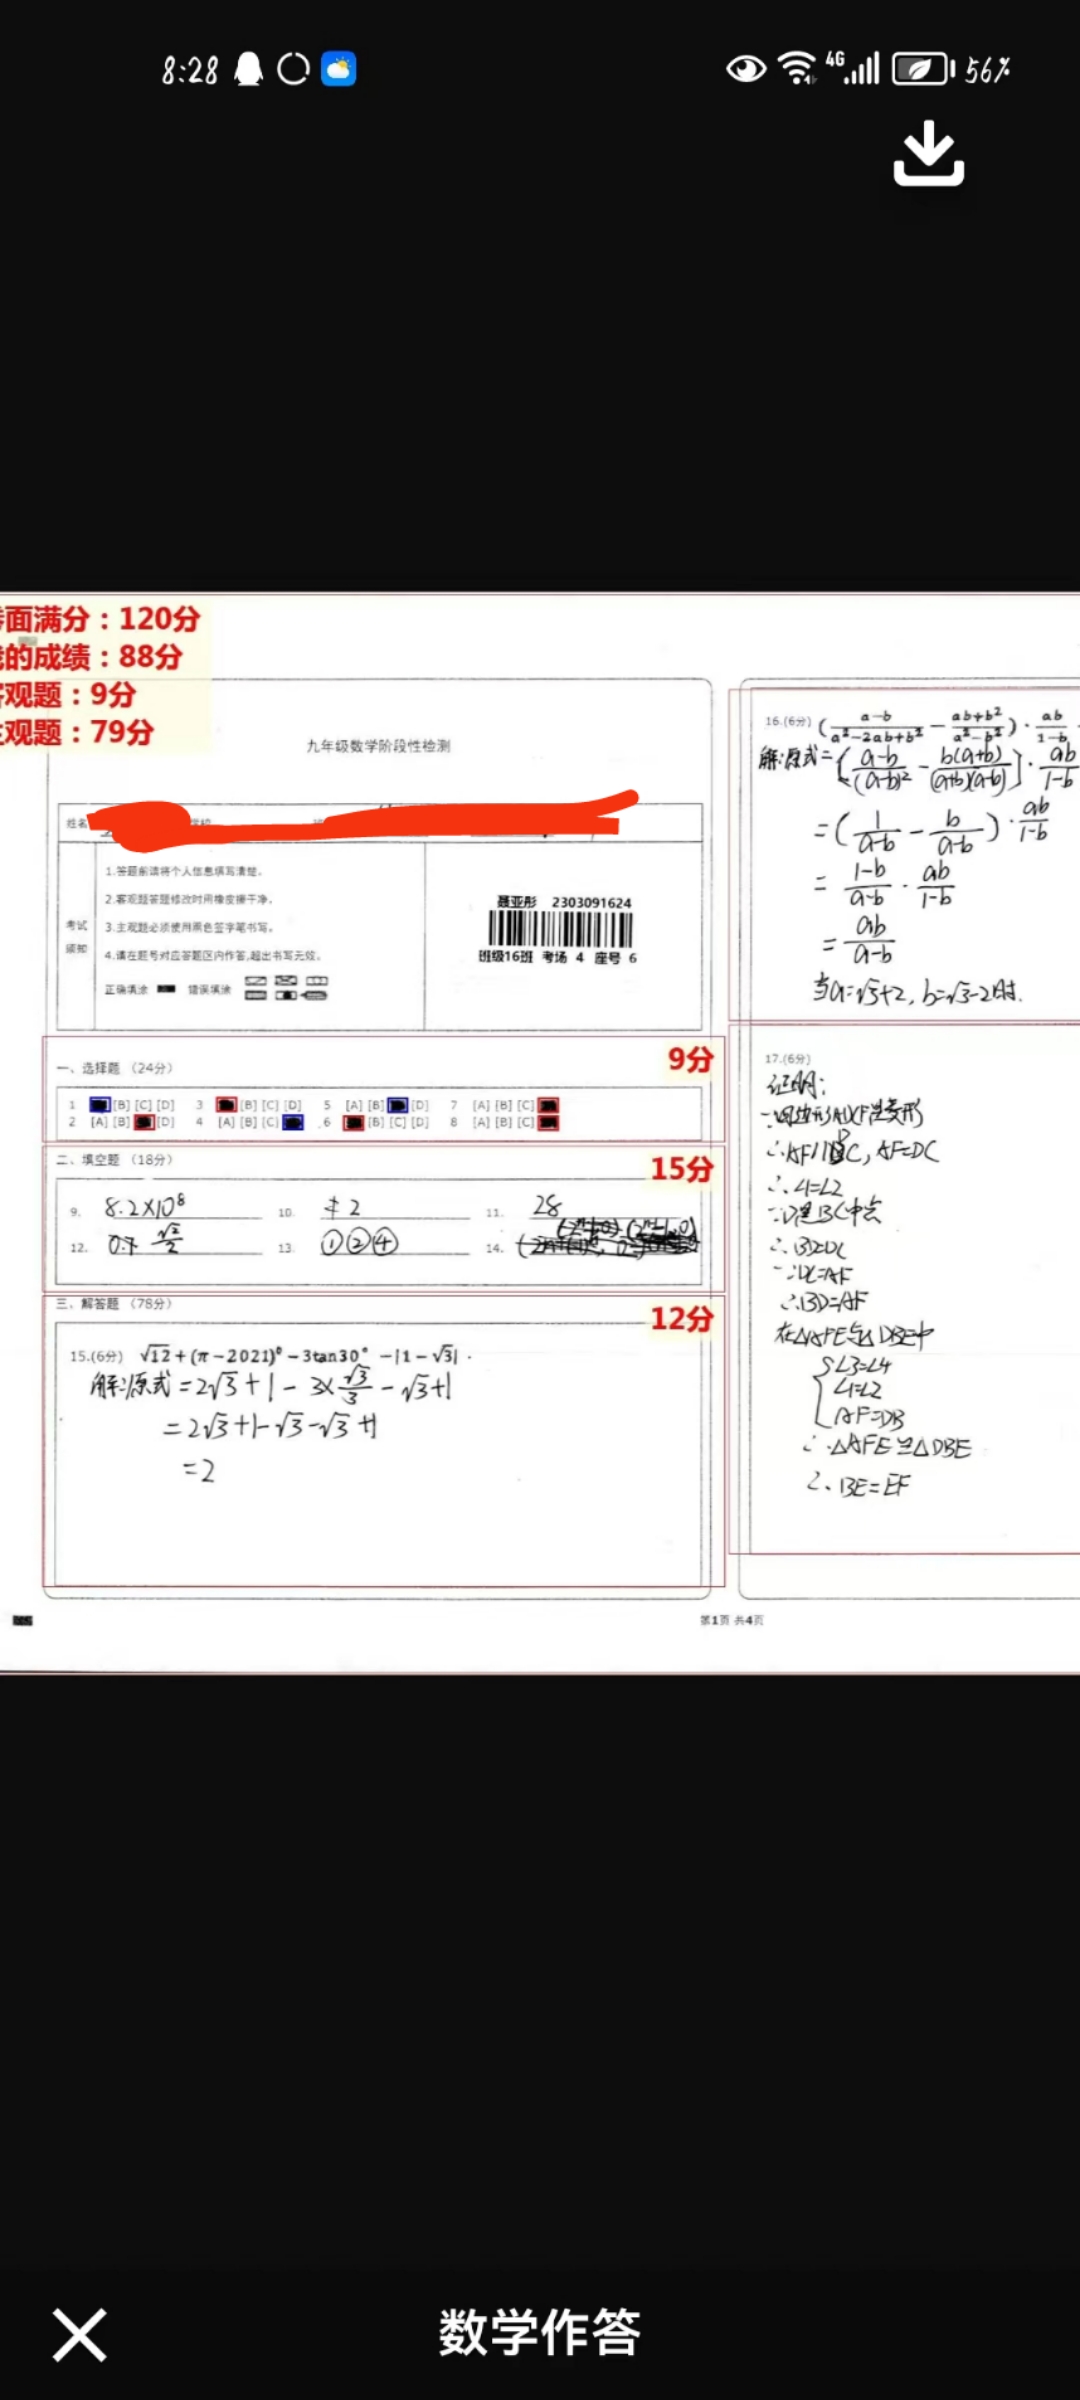 8:28
4G
56%
面满分：120分
的成绩：88分
观题：9分
观题：79分
九年级数学阶段性检测
姓名
考试
须知
1.答题前请将个人信息填写清楚。
2.客观题答题修改时用橡皮擦干净。
3.主观题必须使用黑色签字笔书写。
4.请在题号对应答题区内作答,超出书写无效。
正确填涂
错误填涂
聂亚彤 2303091624
班级16班 考场 4 座号 6
一、选择题 （24分）
9分
1 [B] [C] [D] 3 [B] [C] [D] 5 [A] [B] [D] 7 [A] [B] [C]
2 [A] [B] [D] 4 [A] [B] [C] 6 [B] [C] [D] 8 [A] [B] [C]
二、填空题 （18分）
15分
9. 8.2×10⁸ 10. ≠2 11. 28
12. √2/2 13. ①②④ 14.
三、解答题 （78分）
12分
15.(6分) √12+(π−2021)⁰−3tan30°−|1−√3|.
解:原式=2√3+1−3×√3/3−√3+1
=2√3+1−√3−√3+1
=2
16.(6分) (a−b/a²−2ab+b² − ab+b²/a²−b²)·ab/1−b
解:原式=[a−b/(a−b)² − b(a+b)/(a+b)(a−b)]·ab/1−b
=(1/a−b − b/a−b)·ab/1−b
=1−b/a−b·ab/1−b
=ab/a−b
当a=√3+2,b=√3−2时.
17.(6分)
证明:
∵四边形ADCF是菱形
∴AF∥BC,AF=DC
∴∠1=∠2
∵D是BC中点
∴BD=DC
∵DC=AF
∴BD=AF
在△AFE与△DBE中
∠3=∠4
∠1=∠2
AF=DB
∴△AFE≌△DBE
∴BE=EF
第1页 共4页
数学作答